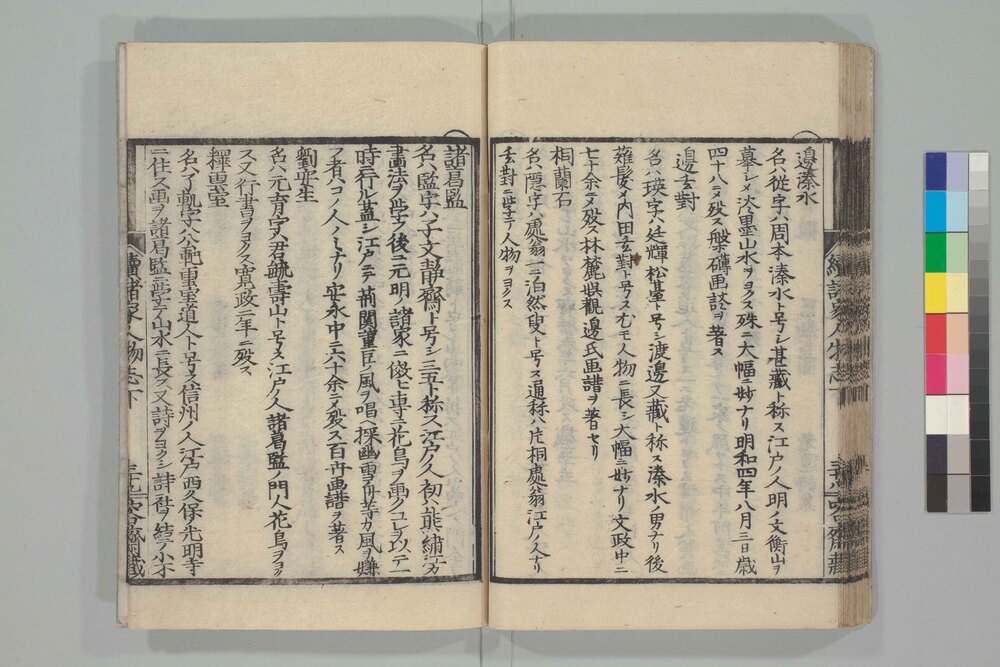 邊溱水
名ハ從字ハ周本溱水ト号シ甚藏ト称ス江戸ノ人明ノ文衡山ヲ
摹シメ淡墨山水ヲヨクス殊ニ大幅ニ妙ナリ明和四年八月三日歳
四十八ニメ殁ス槃礴画談ヲ著ス
邊玄對
名ハ瑛字ハ廷輝松堂ト号シ渡邊又藏ト称ス溱水ノ男ナリ後
薙髮メ内田玄對ト号ス尤モ人物ニ長シ大幅ニ妙ナリ文政中ニ
七十余ニメ殁ス林麓娯觀邊氏画譜ヲ著セリ
桐蘭石
名ハ隠字ハ處翁一ニ泊然叟ト号ス通称ハ片桐處翁江戸ノ人ナリ
玄對ニ学テ人物ヲヨクス
諸葛監
名ハ監字ハ子文静齋ト号シ三五ト称ス江戸ノ人初メ熊繡江ヵ
画法ヲ学ヲ後ニ元明ノ諸家ニ倣ヒ專ラ花鳥ヲ画クコレヲ以テ一
時ニ行ル盖シ江戸ニテ荊関董巨ノ風ヲ唱ヘ探幽雪舟等カ風ヲ嫌
フ者ハコノ人ノミナリ安永中ニ六十余ニメ殁ス百卉画譜ヲ著ス
劉安生
名ハ元育字ハ君毓壽山ト号ス江戸ノ人諸葛監ノ門人花鳥ヲヨク
ス又行書ヲヨクス寛政二年ニ殁ス
釋惠室
名ハ字ハ公範重室道人ト号ス信州ノ人江戸西久保光明寺
ニ住ス画ヲ諸葛監ニ学テ山水ニ長ス又詩ヲヨクシ詩社ヲ結フ小不
續諸家人物志下
青雲堂藏